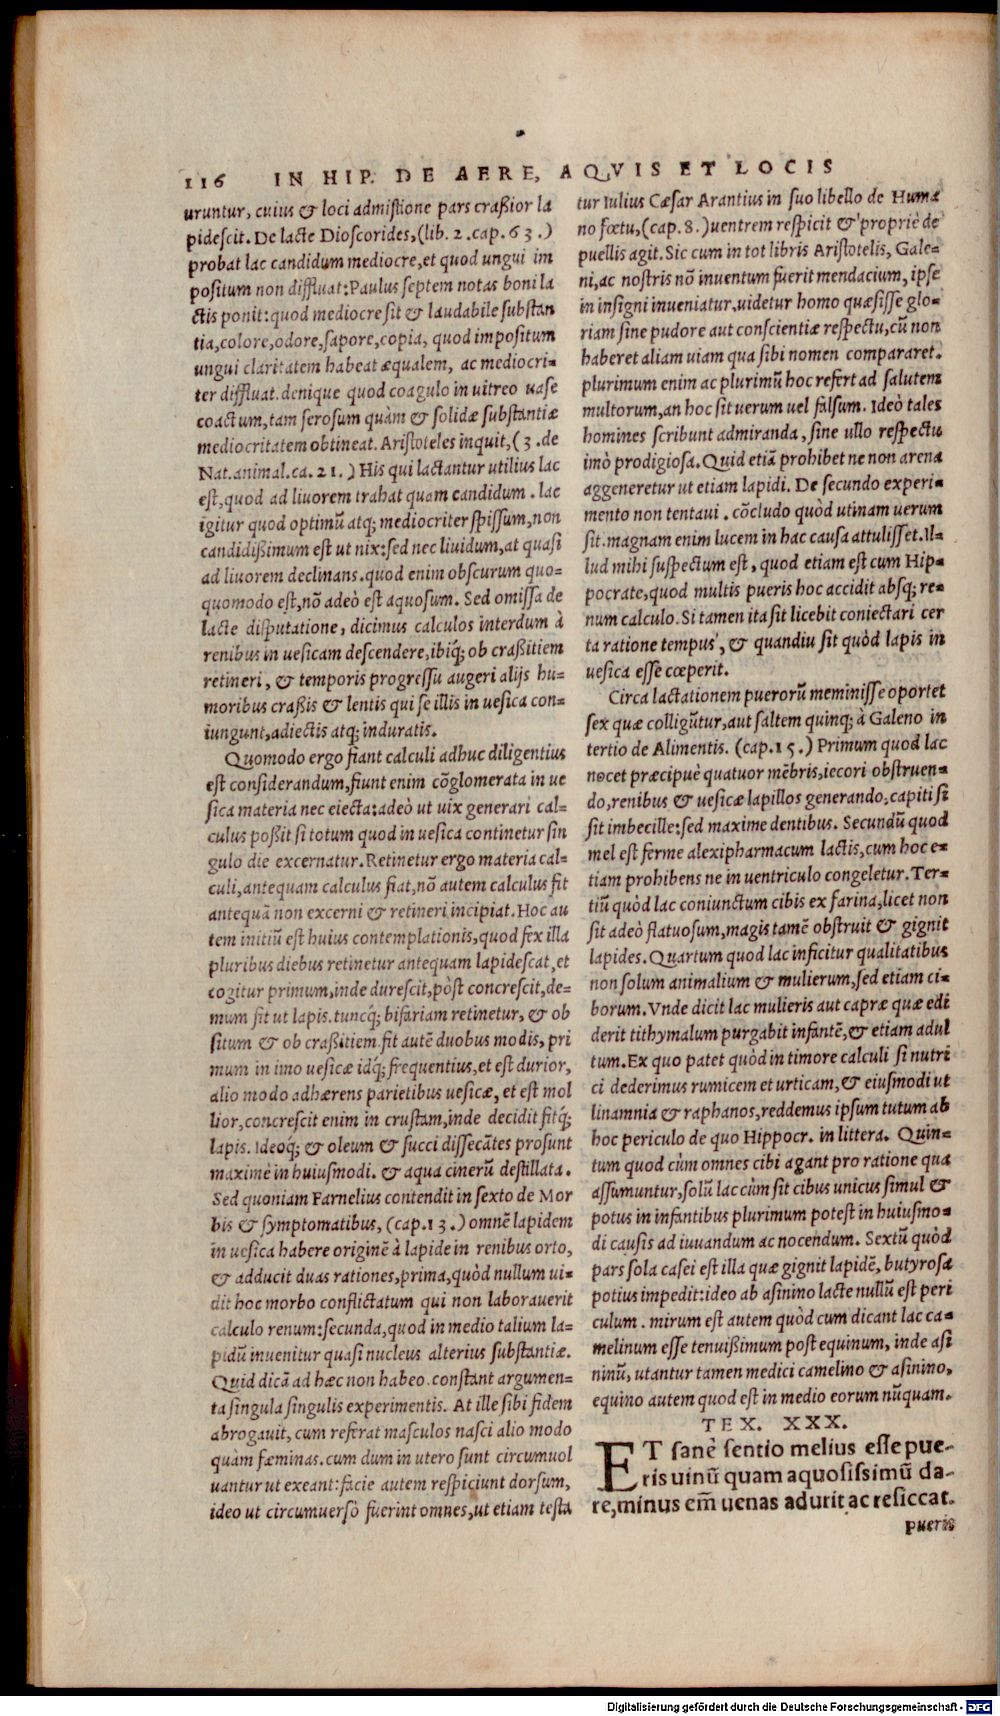 116 IN HIP. DE AERE, AQVIS ET LOCIS
uruntur, cuius & loci admistione pars craßior la
pidescit. De lacte Dioscorides, (lib. 2. cap. 63.)
probat lac candidum mediocre, et quod ungui im
positum non diffluat: Paulus septem notas boni la
ctis ponit: quod mediocre sit & laudabile substan
tia, colore, odore, sapore, copia, quod impositum
ungui claritatem habeat æqualem, ac mediocri=
ter diffluat. denique quod coagulo in uitreo uase
coactum, tam serosum quàm & solidæ substantiæ
mediocritatem obtineat. Aristoteles inquit, (3. de
Nat. animal. ca. 21.) His qui lactantur utilius lac
est, quod ad liuorem trahat quam candidum. lac
igitur quod optimũ atq; mediocriter spissum, non
candidißimum est ut nix: sed nec liuidum, at quasi
ad liuorem declinans. quod enim obscurum quo=
quomodo est, nõ adeò est aquosum. Sed omissa de
lacte disputatione, dicimus calculos interdum à
renibus in uesicam descendere, ibiq́; ob craßitiem
retineri, & temporis progressu augeri alijs hu=
moribus craßis & lentis qui se illis in uesica con=
iungunt, adiectis atq; induratis.
Quomodo ergo fiant calculi adhuc diligentius
est considerandum, fiunt enim cõglomerata in ue
sica materia nec eiecta: adeò ut uix generari cal=
culus poßit si totum quod in uesica continetur sin
gulo die excernatur. Retinetur ergo materia cal=
culi, antequam calculus fiat, nõ autem calculus fit
antequã non excerni & retineri incipiat. Hoc au
tem initiũ est huius contemplationis, quod fex illa
pluribus diebus retinetur antequam lapidescat, et
cogitur primum, inde durescit, pòst concrescit, de=
mum fit ut lapis. tuncq́; bifariam retinetur, & ob
situm & ob craßitiem. fit autẽ duobus modis, pri
mum in imo uesicæ idq́; frequentius, et est durior,
alio modo adhærens parietibus uesicæ, et est mol
lior, concrescit enim in crustam, inde decidit fitq́;
lapis. Ideoq́; & oleum & succi dissecãtes prosunt
maximè in huiusmodi. & aqua cinerũ destillata.
Sed quoniam Farnelius contendit in sexto de Mor
bis & symptomatibus, (cap. 13.) omnẽ lapidem
in uesica habere originẽ à lapide in renibus orto,
& adducit duas rationes, prima, quòd nullum ui=
dit hoc morbo conflictatum qui non laborauerit
calculo renum: secunda, quod in medio talium la=
pidũ inuenitur quasi nucleus alterius substantiæ.
Quid dicã ad hæc non habeo. constant argumen=
ta singula singulis experimentis. At ille sibi fidem
abrogauit, cum referat masculos nasci alio modo
quàm fæminas. cum dum in utero sunt circumuol
uantur ut exeant: facie autem respiciunt dorsum,
ideo ut circumuersò fuerint omnes, ut etiam testa
tur Iulius Cæsar Arantius in suo libello de Huma
no fœtu, (cap. 8.) uentrem respicit & propriè de
puellis agit. Sic cum in tot libris Aristotelis, Gale=
ni, ac nostris nõ inuentum fuerit mendacium, ipse
in insigni inueniatur. uidetur homo quæsisse glo=
riam sine pudore aut conscientiæ respectu, cũ non
haberet aliam uiam qua sibi nomen compararet.
plurimum enim ac plurimũ hoc refert ad salutem
multorum, an hoc sit uerum uel falsum. Ideò tales
homines scribunt admiranda, sine ullo respectu
imò prodigiosa. Quid etiã prohibet ne non arena
aggeneretur ut etiam lapidi. De secundo experi=
mento non tentaui. cõcludo quòd utinam uerum
sit. magnam enim lucem in hac causa attulisset. Il=
lud mihi suspectum est, quod etiam est cum Hip=
pocrate, quod multis pueris hoc accidit absq; re=
num calculo. Si tamen ita sit licebit coniectari cer
ta ratione tempus, & quandiu sit quòd lapis in
uesica esse cœperit.
Circa lactationem puerorũ meminisse oportet
sex quæ colligũtur, aut saltem quinq; à Galeno in
tertio de Alimentis. (cap. 15.) Primum quod lac
nocet præcipuè quatuor mẽbris, iecori obstruen=
do, renibus & uesicæ lapillos generando, capiti si
sit imbecille: sed maxime dentibus. Secundũ quod
mel est ferme alexipharmacum lactis, cum hoc e=
tiam prohibens ne in uentriculo congeletur. Ter=
tiũ quòd lac coniunctum cibis ex farina, licet non
sit adeò flatuosum, magis tamẽ obstruit & gignit
lapides. Quartum quod lac inficitur qualitatibus
non solum animalium & mulierum, sed etiam ci=
borum. Vnde dicit lac mulieris aut capræ quæ edi
derit tithymalum purgabit infantẽ, & etiam adul
tum. Ex quo patet quòd in timore calculi si nutri
ci dederimus rumicem et urticam, & eiusmodi ut
linamnia & raphanos, reddemus ipsum tutum ab
hoc periculo de quo Hippocr. in littera. Quin=
tum quod cùm omnes cibi agant pro ratione qua
assumuntur, solũ lac cùm sit cibus unicus simul &
potus in infantibus plurimum potest in huiusmo=
di causis ad iuuandum ac nocendum. Sextũ quòd
pars sola casei est illa quæ gignit lapidẽ, butyrosa
potius impedit: ideo ab asinino lacte nullũ est peri
culum. mirum est autem quòd cum dicant lac ca=
melinum esse tenuißimum post equinum, inde asi
ninũ, utantur tamen medici camelino & asinino,
equino autem quod est in medio eorum nũquam.
TEX. XXX.
ET sanè sentio melius esse pue-
ris uinũ quam aquosissimũ da-
re, minus em̃ uenas adurit ac resiccat.
pueris
Digitalisierung gefördert durch die Deutsche Forschungsgemeinschaft - DFG